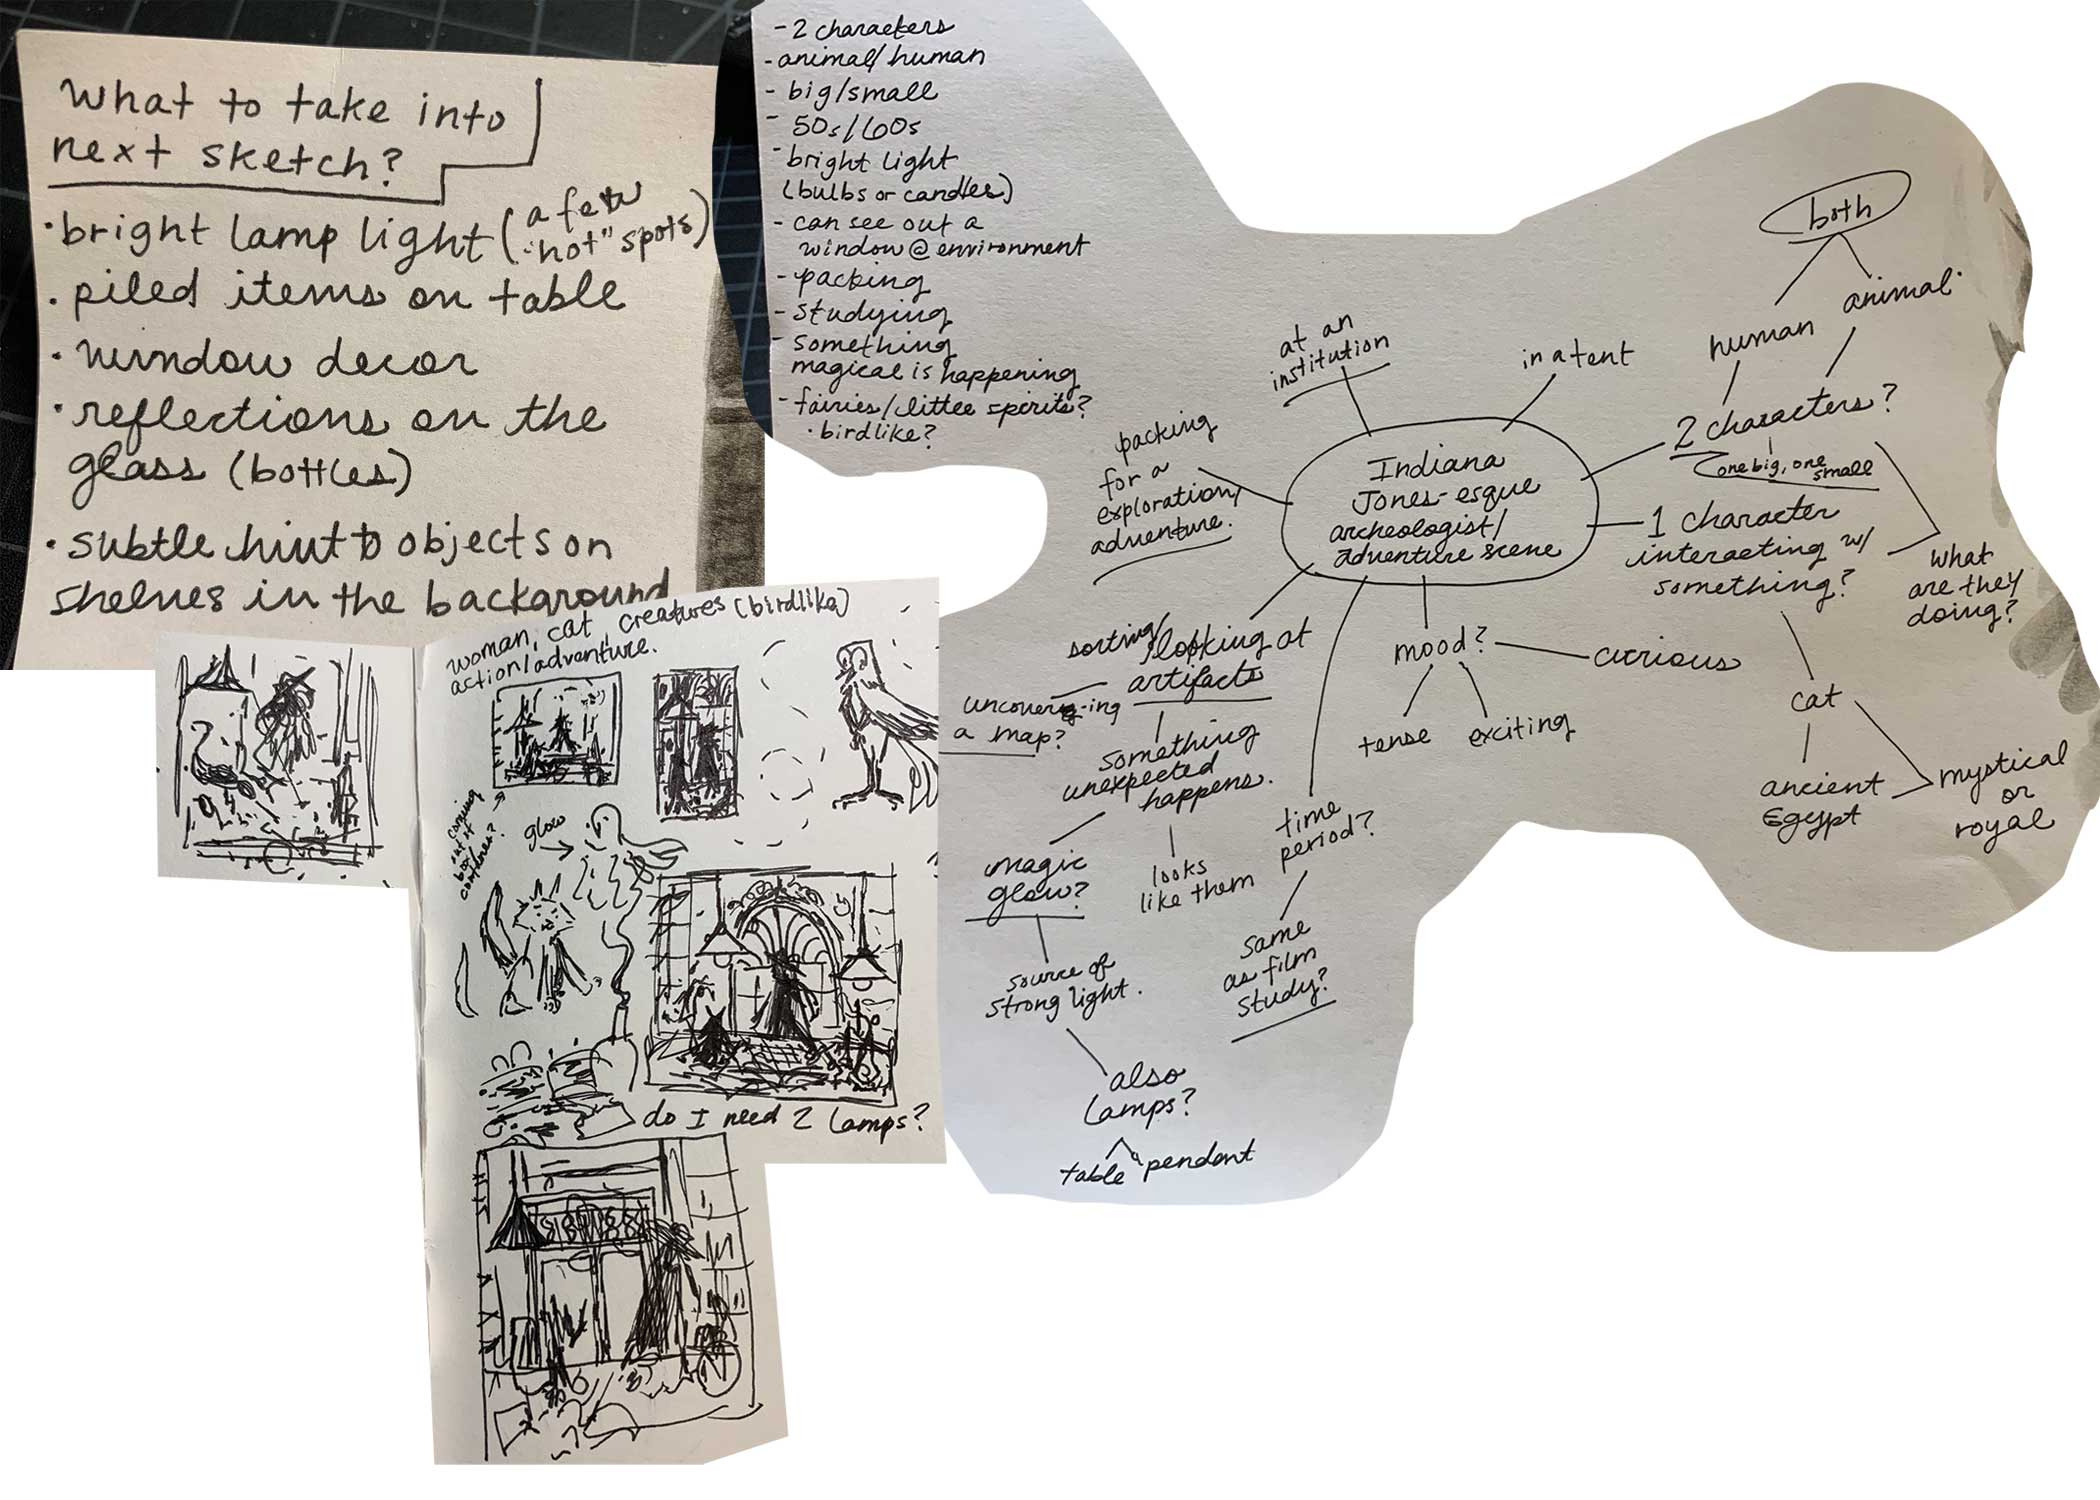 what to take into
next sketch?
• bright lamp light (a few
"hot" spots)
• piled items on table
• window decor
• reflections on the
glass (bottles)
• subtle hint to objects on
shelves in the background
- 2 characters
- animal/human
- big/small
- 50s/60s
- bright light
(bulbs or candles)
- can see out a
window @ environment
- packing
- studying
- something
magical is happening
- fairies/little spirits?
• birdlike?
both
human
animal
2 characters?
one big, one
small
1 character
interacting w/
something?
what
are they
doing?
cat
ancient
Egypt
mystical
or
royal
at an
institution
in a tent
Indiana
Jones-esque
archeologist/
adventure scene
packing
for a
exploration/
adventure.
sorting/looking at
artifacts
uncover-ing
a map?
something
unexpected
happens.
magic
glow?
looks
like them
source of
strong light.
also
lamps?
table
pendant
mood?
curious
tense
exciting
time
period?
same
as film
study?
woman, cat, creatures (birdlike)
action/adventure.
coming
out of
box
container?
glow
do I need 2 lamps?